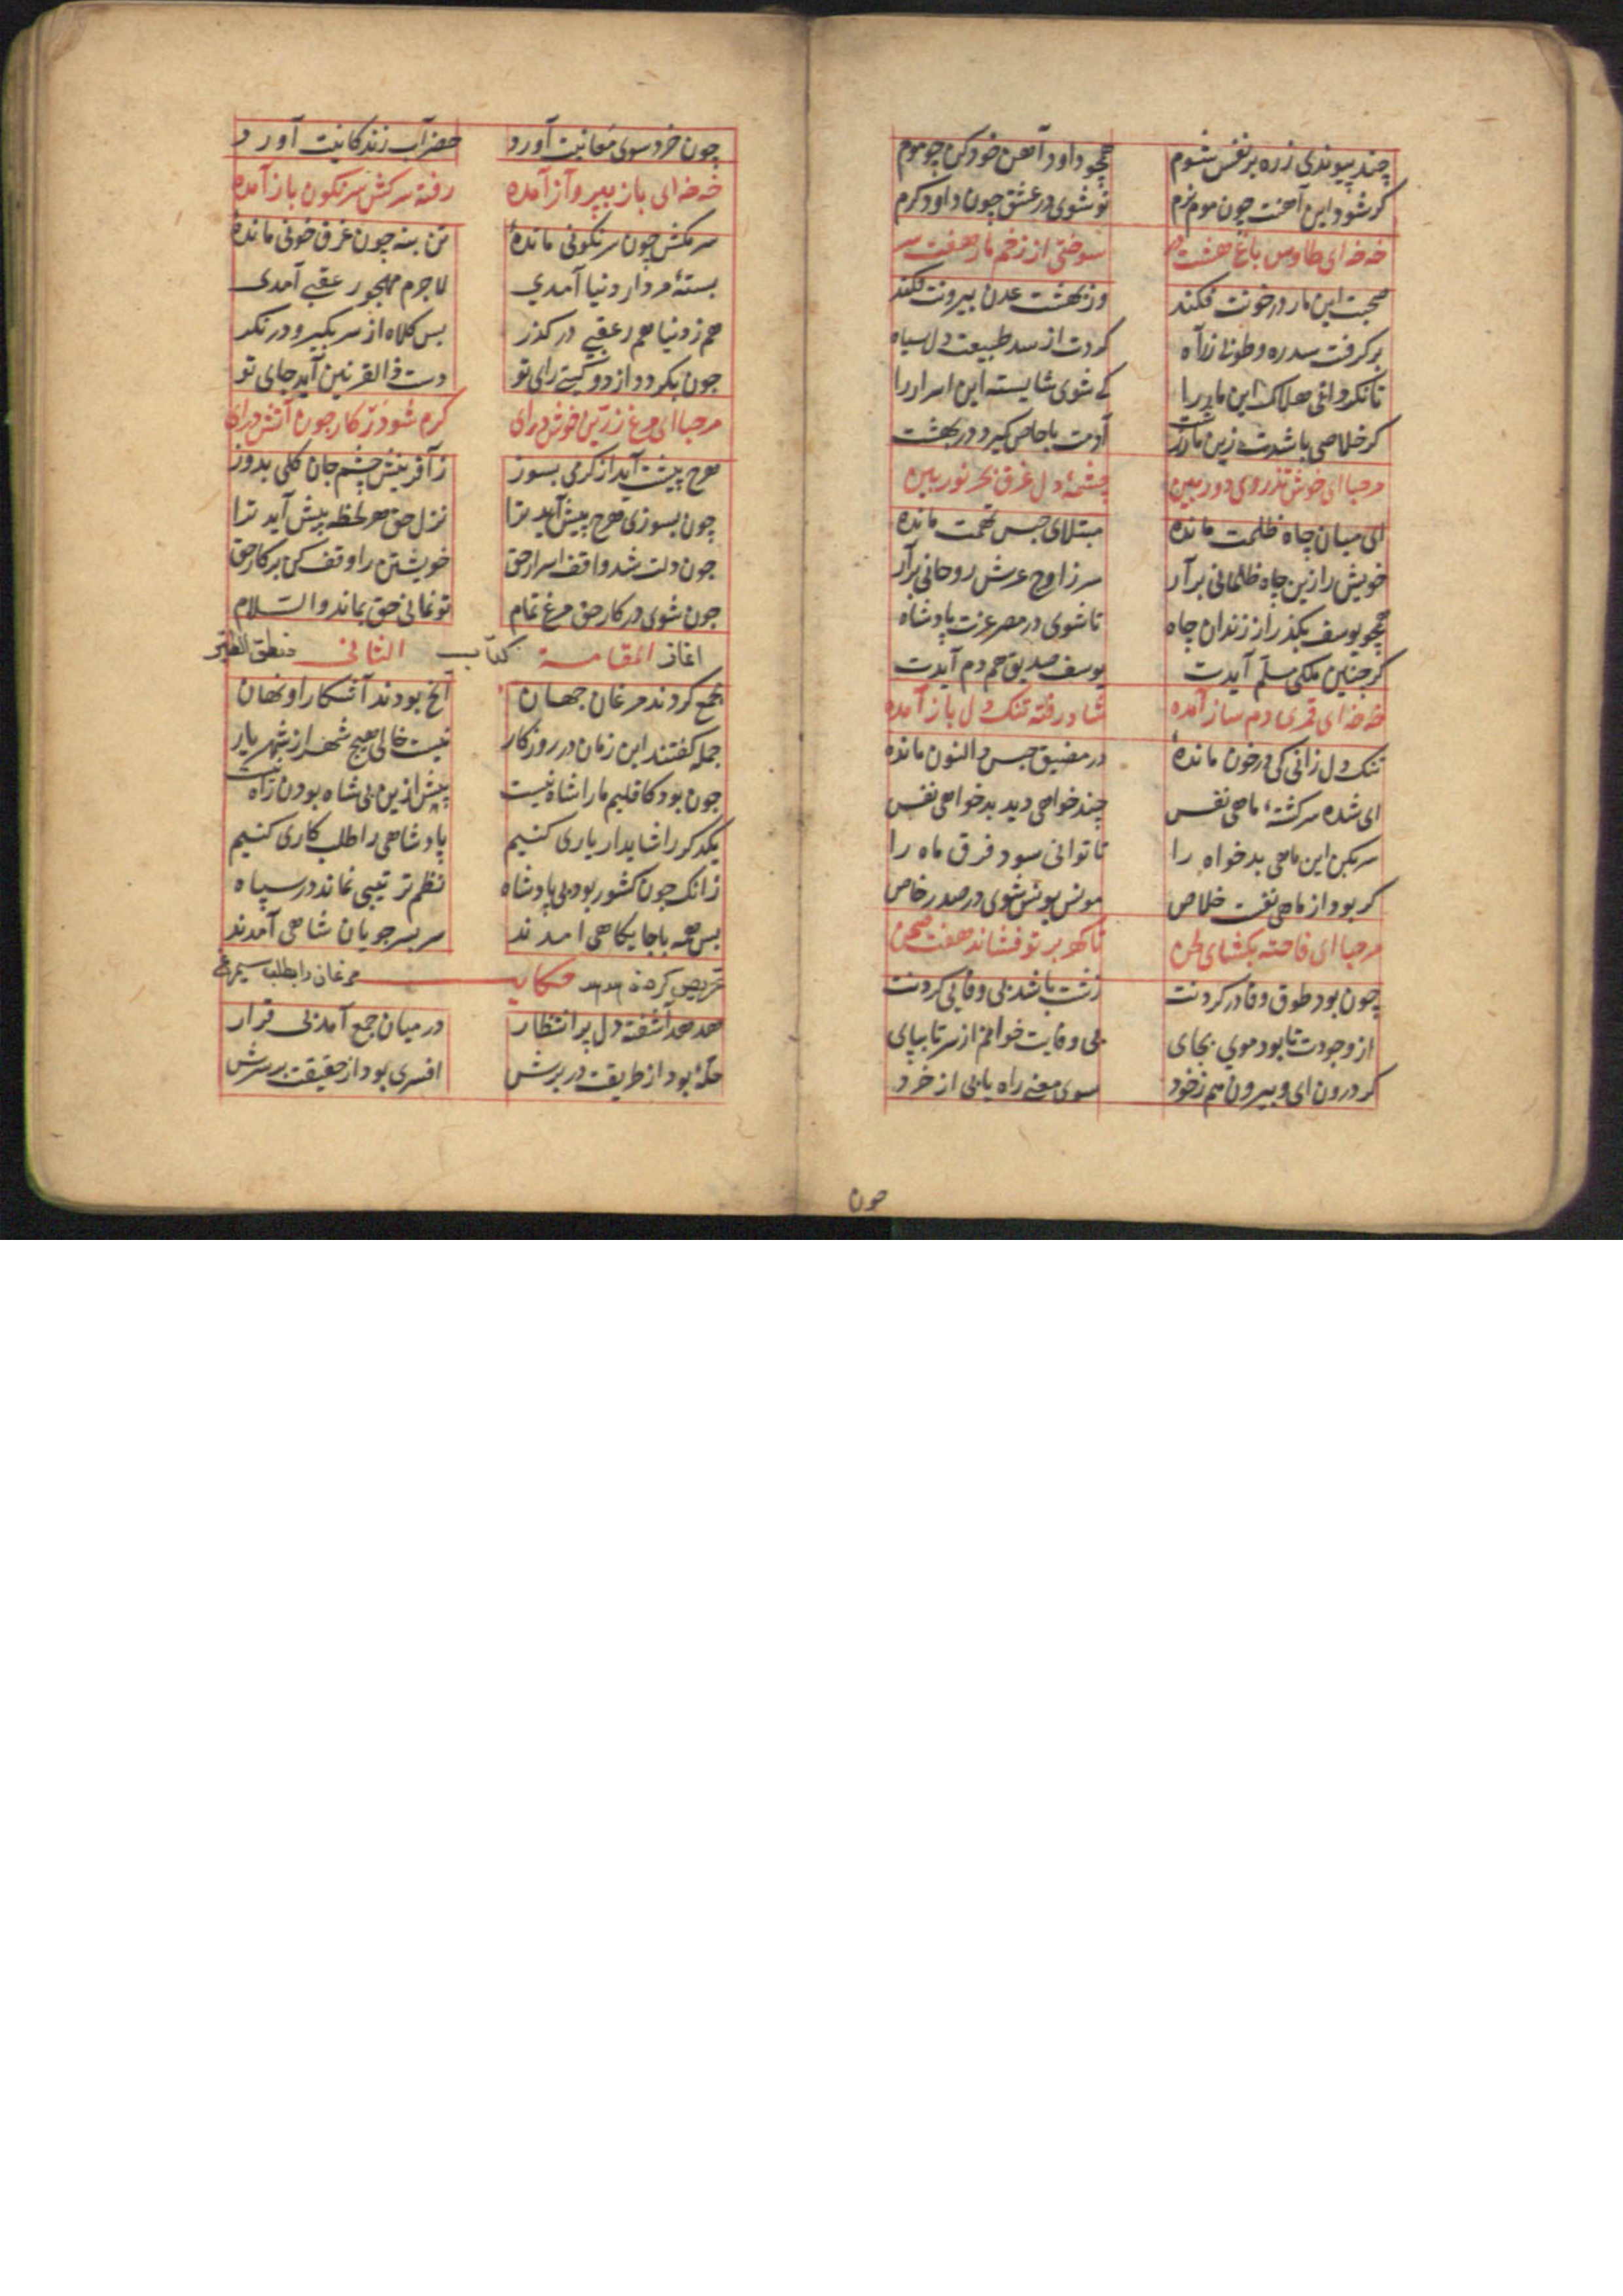 چند پیوندی زره بر نفس شوم همچو داود آهن خود کن چو موم
کر شود این آهنت چون موم نرم تو شوی در عشق چون داود کرم
خه خه ای طاوس باغ هشت در سوختی از زخم مار هفت سر
صحبت این مار در خونت فکند وز بهشت عدن بیرونت فکند
بر کرفت سدره و طوبی ز راه کردت از سد طبیعت دل سیاه
تا نکردانی هلاک این مار را کی شوی شایسته این اسرار را
کر خلاصی باشدت زین مار زشت آدمت با خاص کیرد در بهشت
مرحبا ای خوش تذروی دور بین چشمهٔ دل غرق بحر نور بین
ای میان چاه ظلمت مانده مبتلای حبس تهمت مانده
خویش را زین چاه ظلمانی برآر سر ز اوج عرش روحانی برآر
همچو یوسف بکذر از زندان چاه تا شوی در مصر عزت پادشاه
کر چنین ملکی مسلّم آیدت یوسف صدیق همدم آیدت
خه خه ای قمری دمساز آمده شاد رفته تنک دل باز آمده
تنک دل زانی کی در خون ماندهٔ در مضیق حبس ذوالنون مانده
ای شده سرکشتهٔ ماهی نفس چند خواهی دید بدخواهی نفس
سر بکن این ماهی بدخواه را تا توانی سود فرق ماه را
کر بود از ماهی نفست خلاص مونس یونس شوی در صدر خاص
مرحبا ای فاخته بکشای لحن تا کهر بر تو فشاند هفت صحن
چون بود طوق وفا در کردنت زشت باشد بی وفایی کردنت
از وجودت تا بود مویی بجای بی وفایت خوانم از سر تا بپای
کر درون ای و بیرون هم ز خود سوی معنی راه یابی از خرد
چون
چون خرد سوی معانیت آورد خضر آب زندکانیت آورد
خه خه ای باز بپرواز آمده رفته سرکش سرنکون باز آمده
سر مکش چون سرنکونی ماندهٔ تن بنه چون غرق خونی ماندهٔ
بستهٔ مردار دنیا آمدی لاجرم مهجور عقبی آمدی
هم ز دنیا هم ز عقبی در کذر بس کلاه از سر بکیر و در نکر
چون بکردد از دو کیتی رای تو دست ذالقرنین آید جای تو
مرحبا ای مرغ زرّین خوش درای کرم شو در کار چون آتش درای
هرچ پیشت آید از کرمی بسوز ز آفرینش چشم جان کلی بدوز
چون بسوزی هرچ پیش آید ترا نزل حق هر لحظه پیش آید ترا
چون دلت شد واقف اسرار حق خویشتن را وقف کن بر کار حق
چون شوی در کار حق مرغ تمام تو نمانی حق بماند والسّلام
اغاز المقامة الثانی کتاب منطق الطیر
مجمع کردند مرغان جهان آنچ بودند آشکارا و نهان
جمله کفتند این زمان در روزکار نیست خالی هیچ شهر از شهریار
چون بود کاقلیم ما را شاه نیست بیش ازین بی شاه بودن راه نیست
یکدکر را شاید ار یاری کنیم پادشاهی را طلب کاری کنیم
زانک چون کشور بود بی پادشاه نظم ترتیبی نماند در سپاه
بس همه با جایکاهی امدند سر بسر جویان شاهی آمدند
حکایت تحریص کردن هدهد مرغان را بطلب سیمرغ
هدهد آشفته دل پر انتظار در میان جمع آمد بی قرار
حلهٔ بود از طریقت در برش افسری بود از حقیقت بر سرش